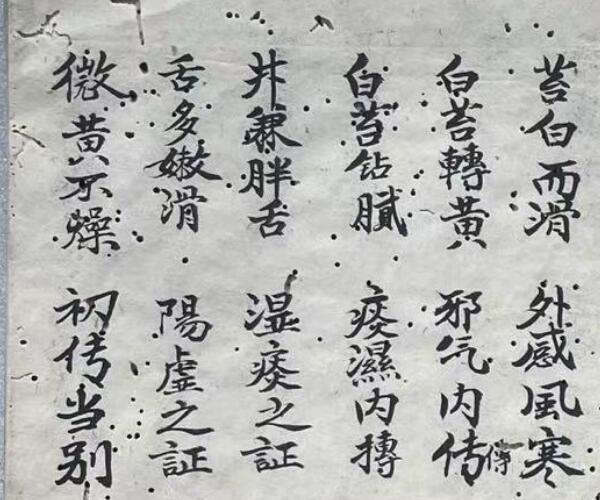 苔白而滑 外感風寒
白苔轉黄 邪气内传傳
白苔钻膩 痰濕内搏
并兼胖舌 湿痰之証
舌多嫩滑 陽虚之証
微黄不燥 初传当别